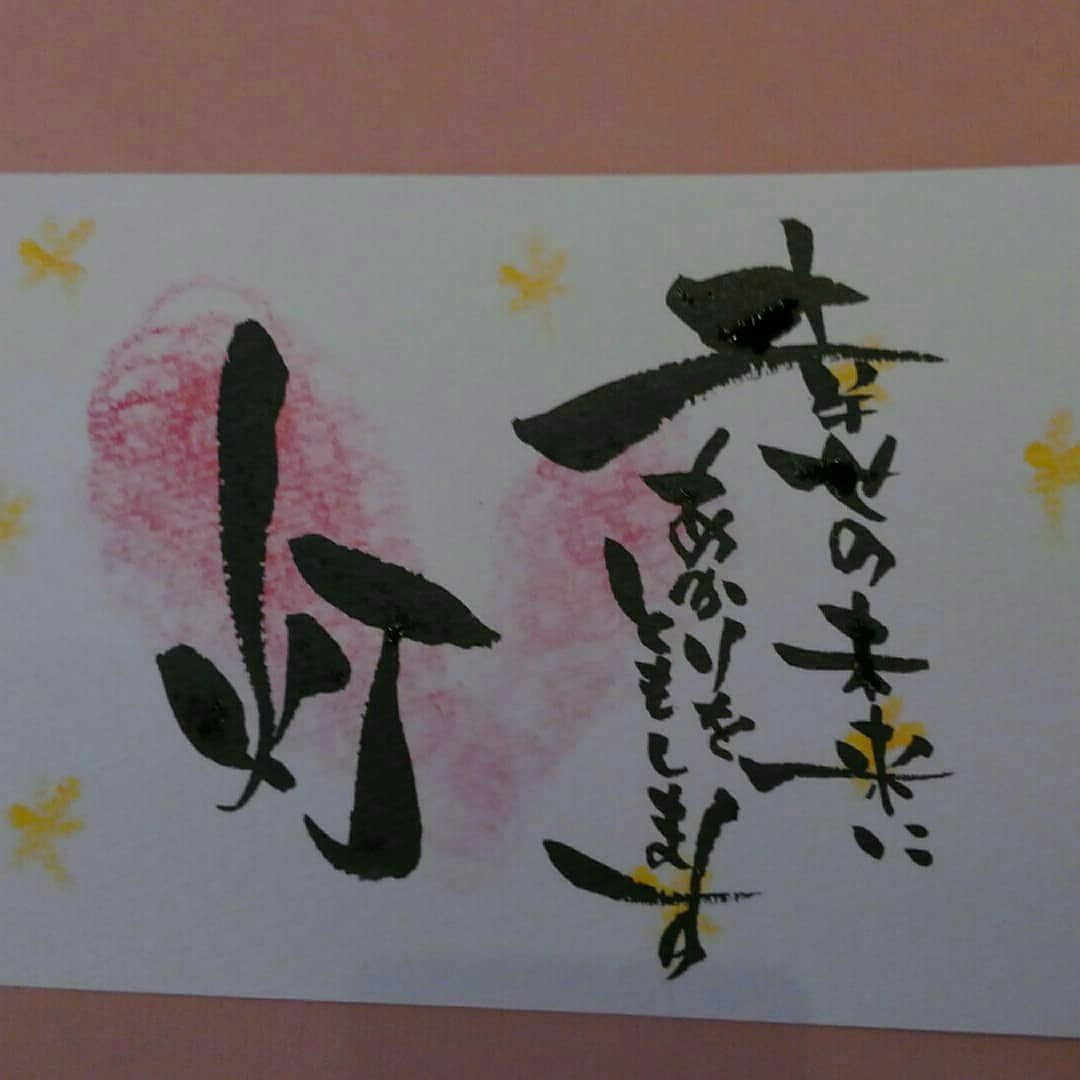 幸せの未来に
あかりを
ともします
灯